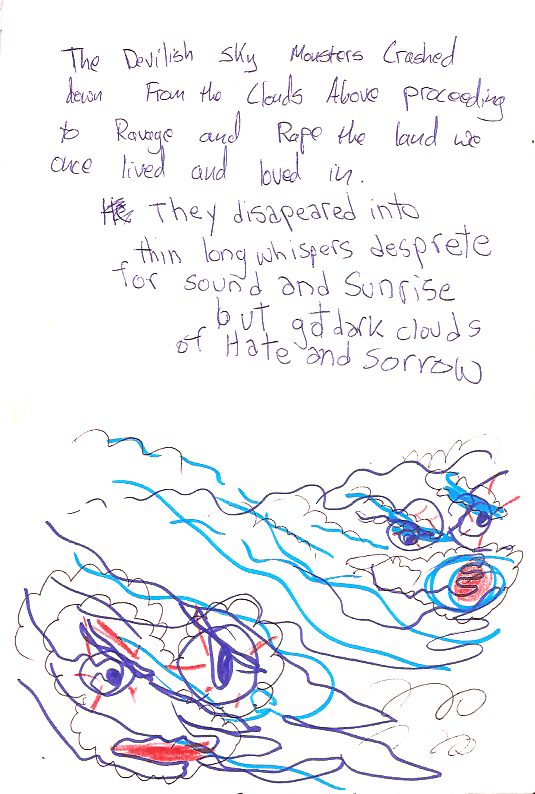 The Devilish Sky Monsters Crashed
down From the Clouds Above proceeding
to Ravage and Rape the land we
once lived and loved in.
They disapeared into
thin long whispers desprete
for sound and Sunrise
but got dark clouds
of Hate and sorrow